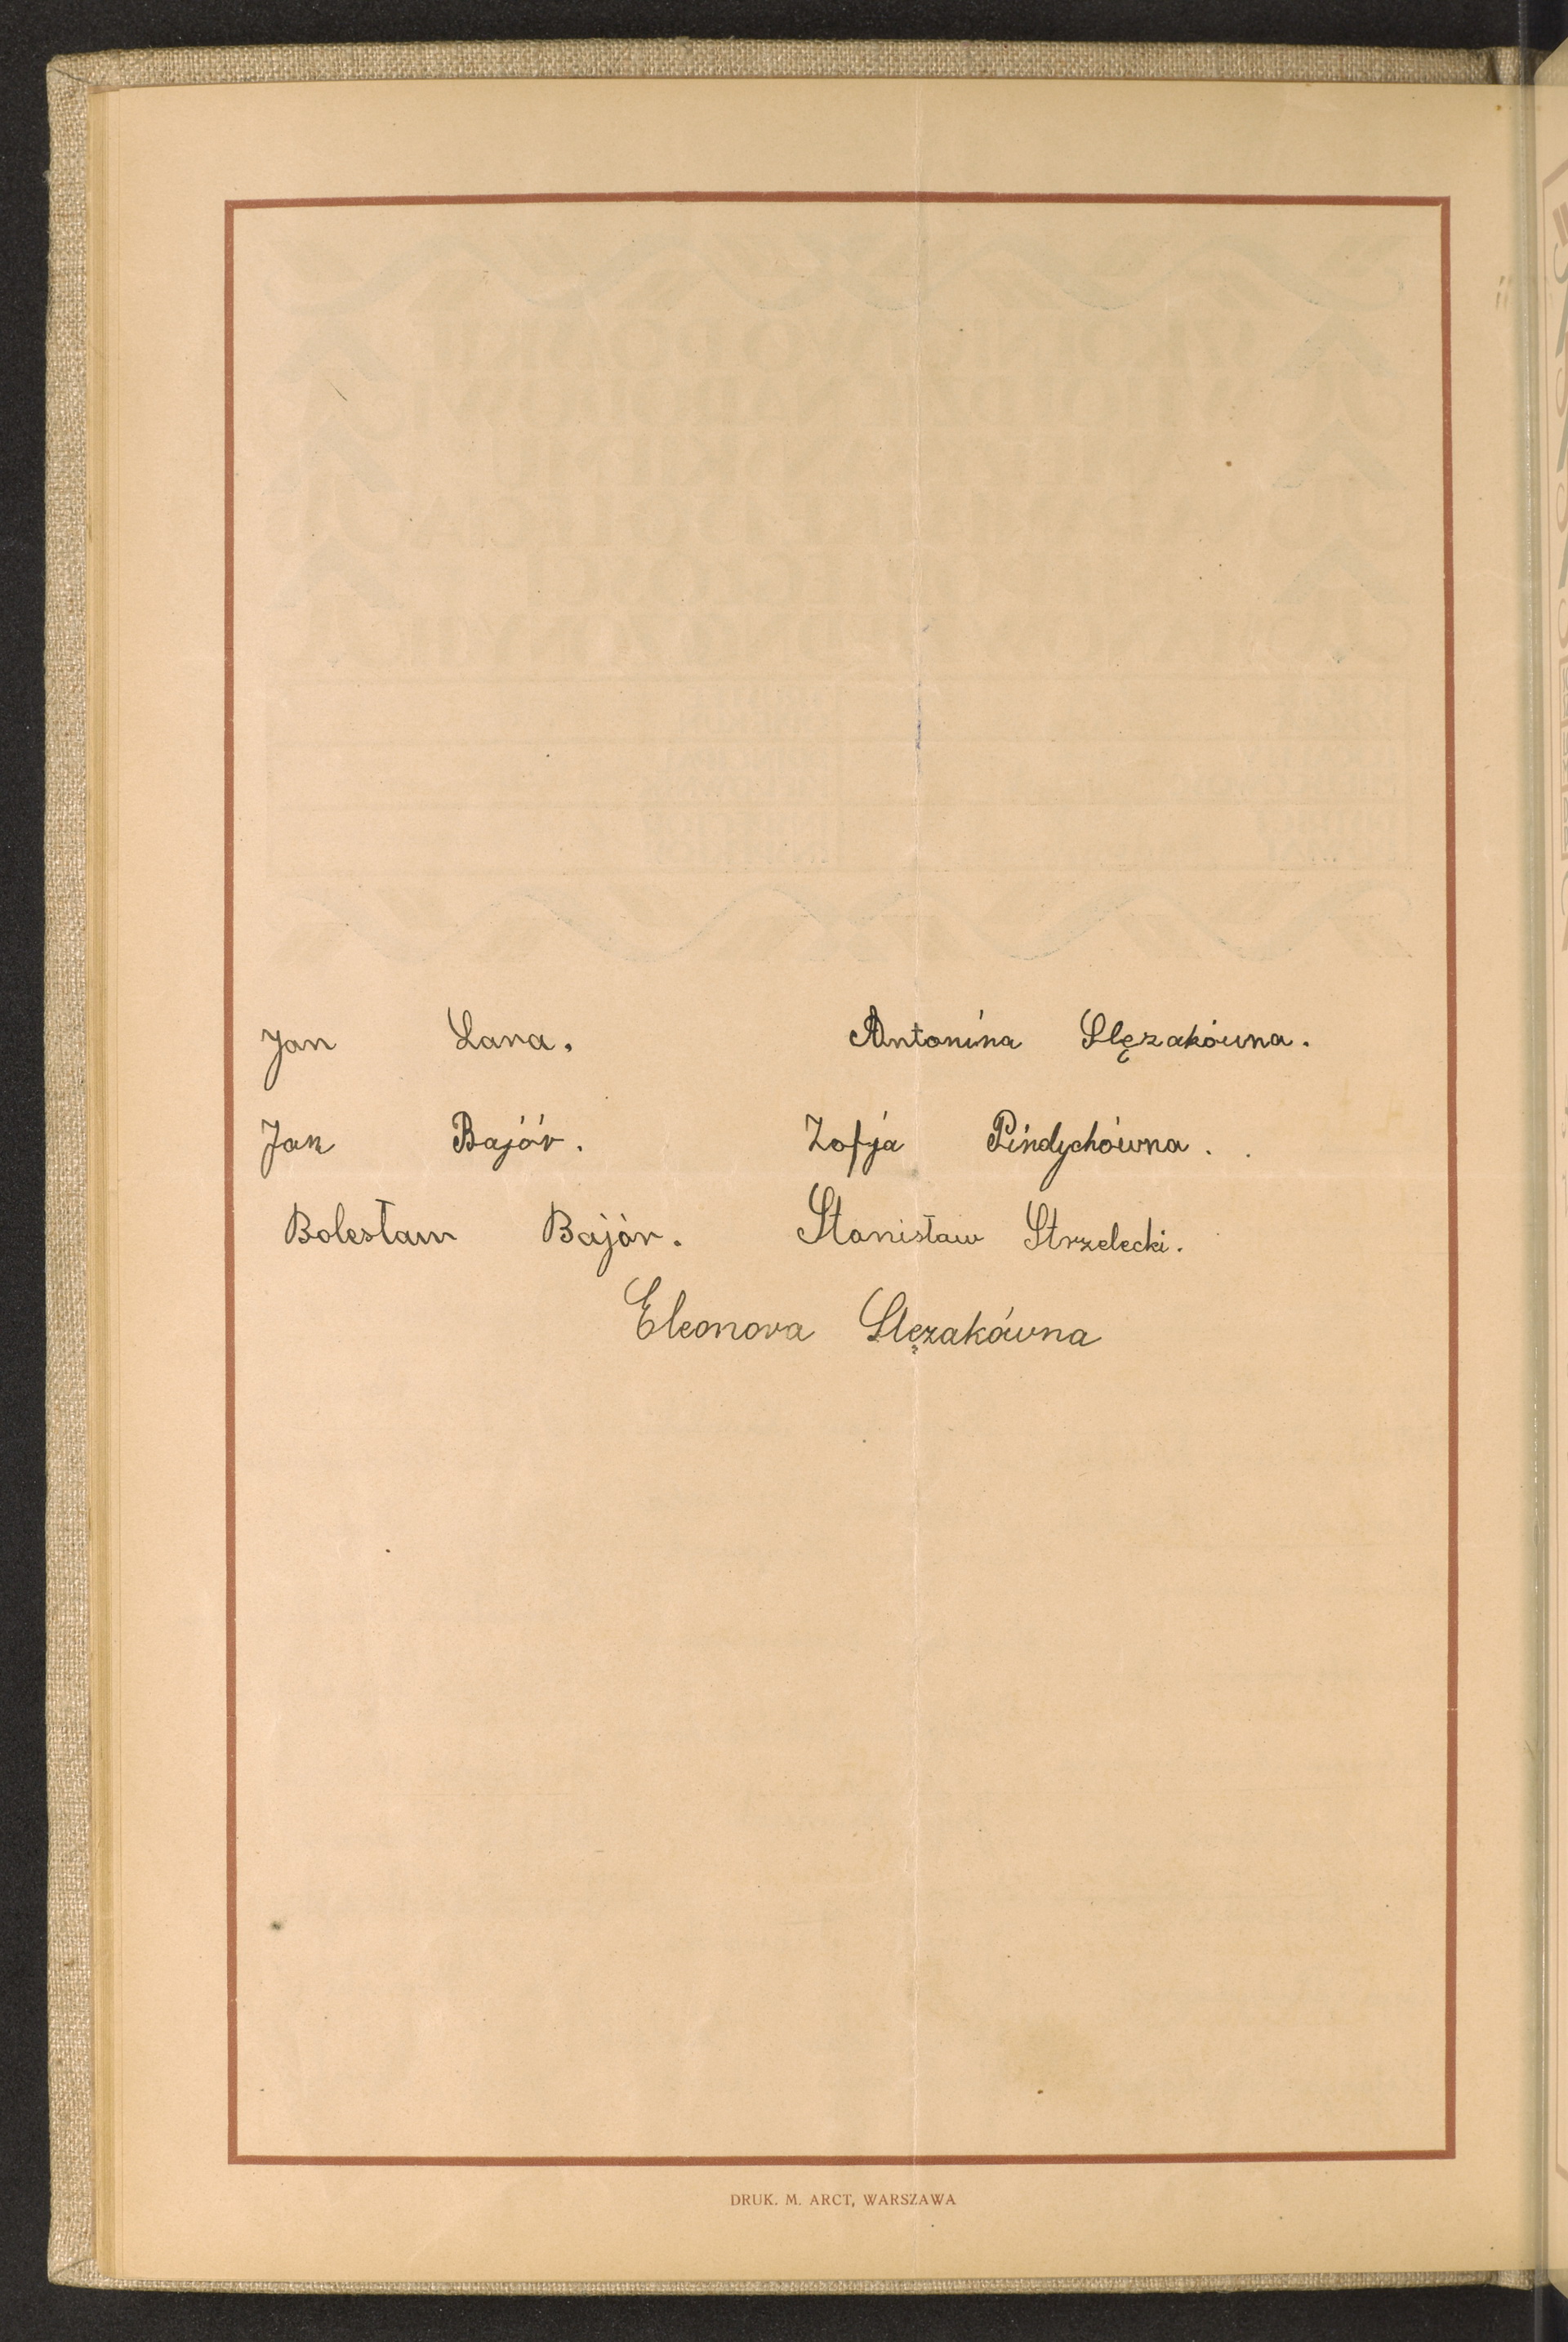 Jan Lara. Antonina Slęzakówna.
Jan Bajór. Zofja Pindychówna.
Bolesław Bajór. Stanisław Strzelecki.
Eleonora Slęzakówna
DRUK. M. ARCT, WARSZAWA